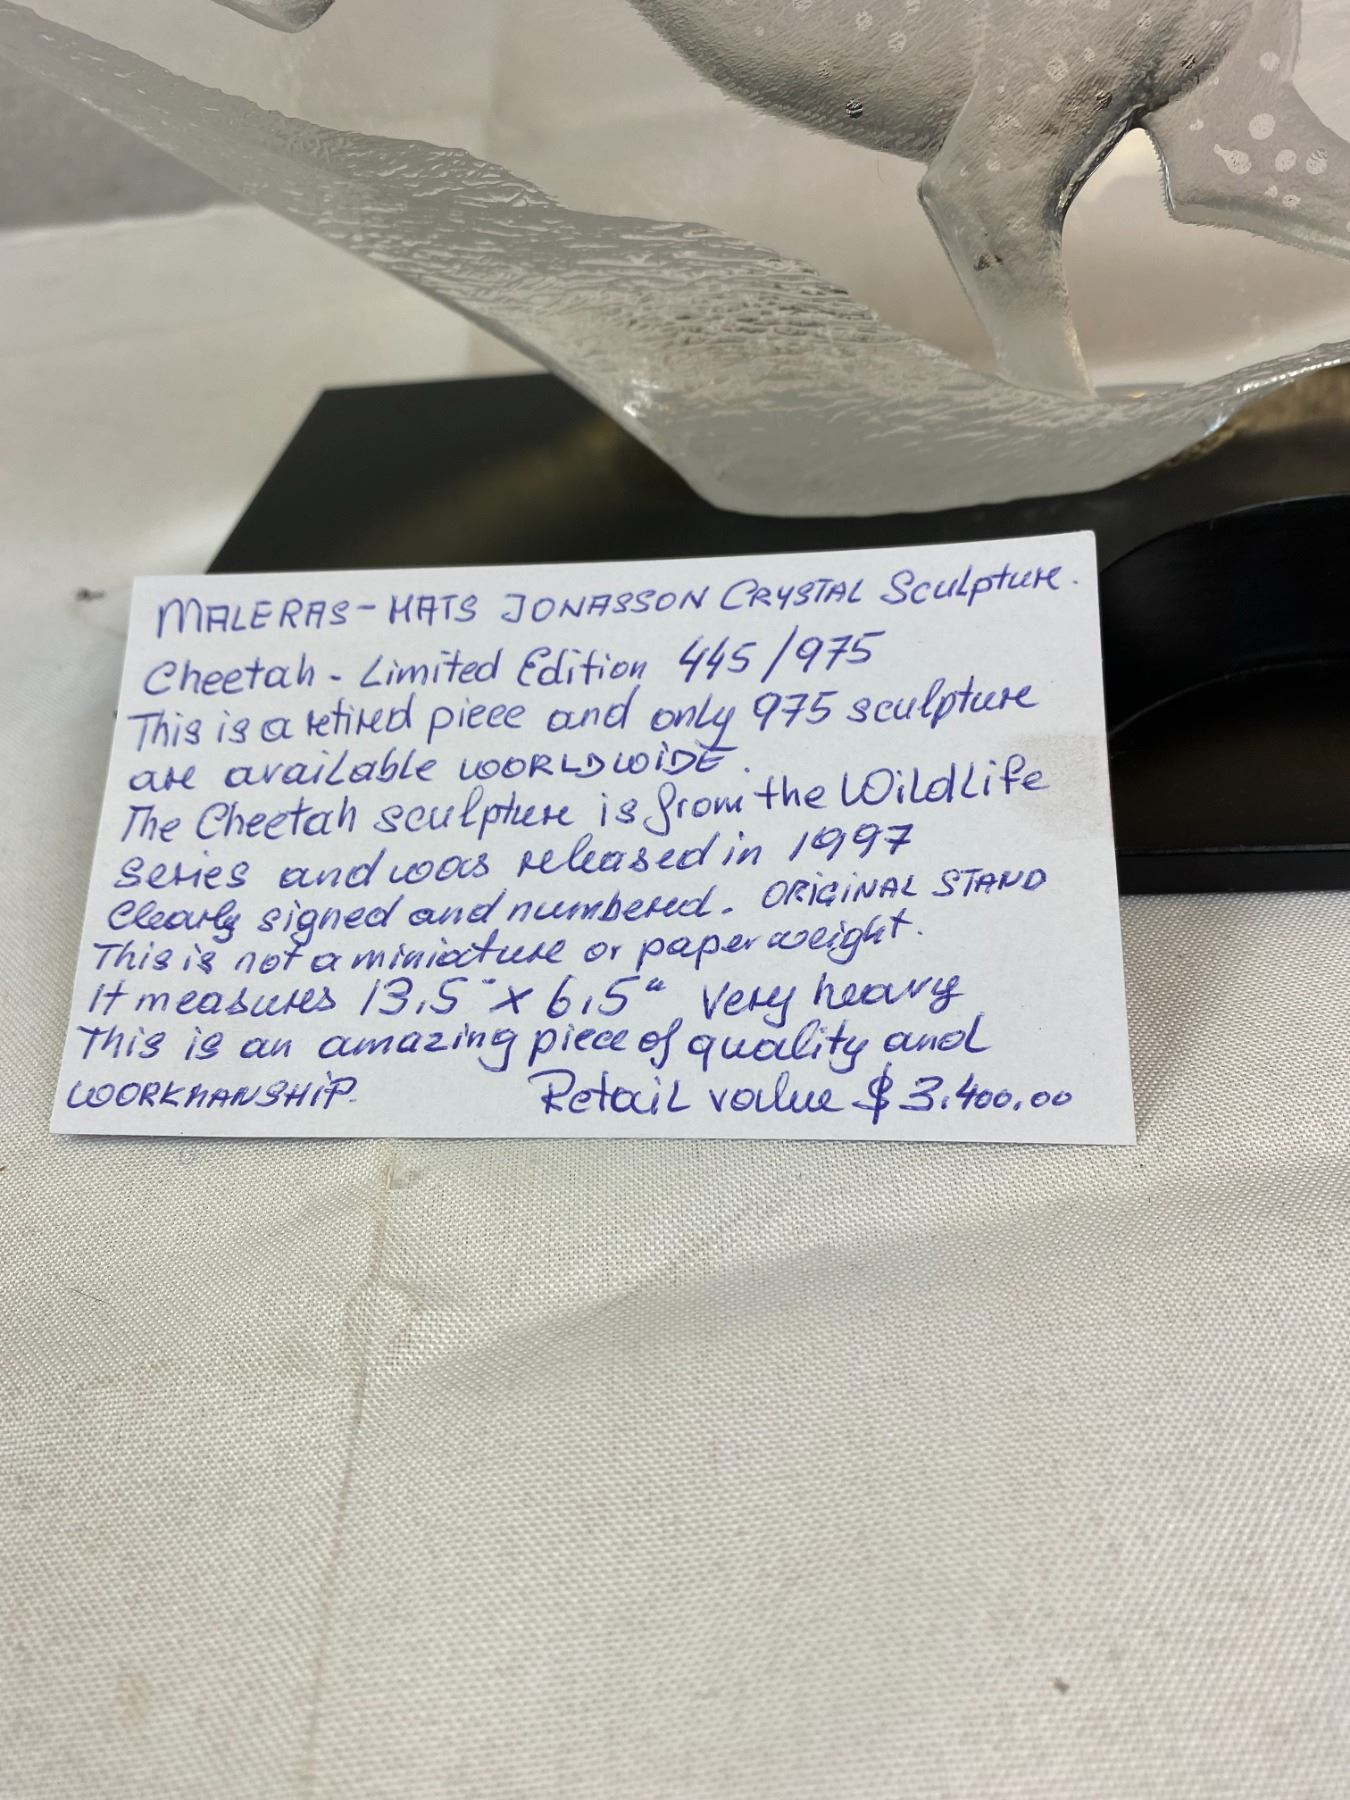 MALERAS - MATS JONASSON CRYSTAL Sculpture.
Cheetah - Limited Edition 445/975
This is a retired piece and only 975 sculpture
are available WORLDWIDE.
The Cheetah sculpture is from the WildLife
series and was released in 1997
Clearly signed and numbered. ORIGINAL STAND
This is not a miniature or paperweight.
It measures 13,5" x 6,5" Very heavy
This is an amazing piece of quality and
WORKMANSHIP. Retail value $3.400.00